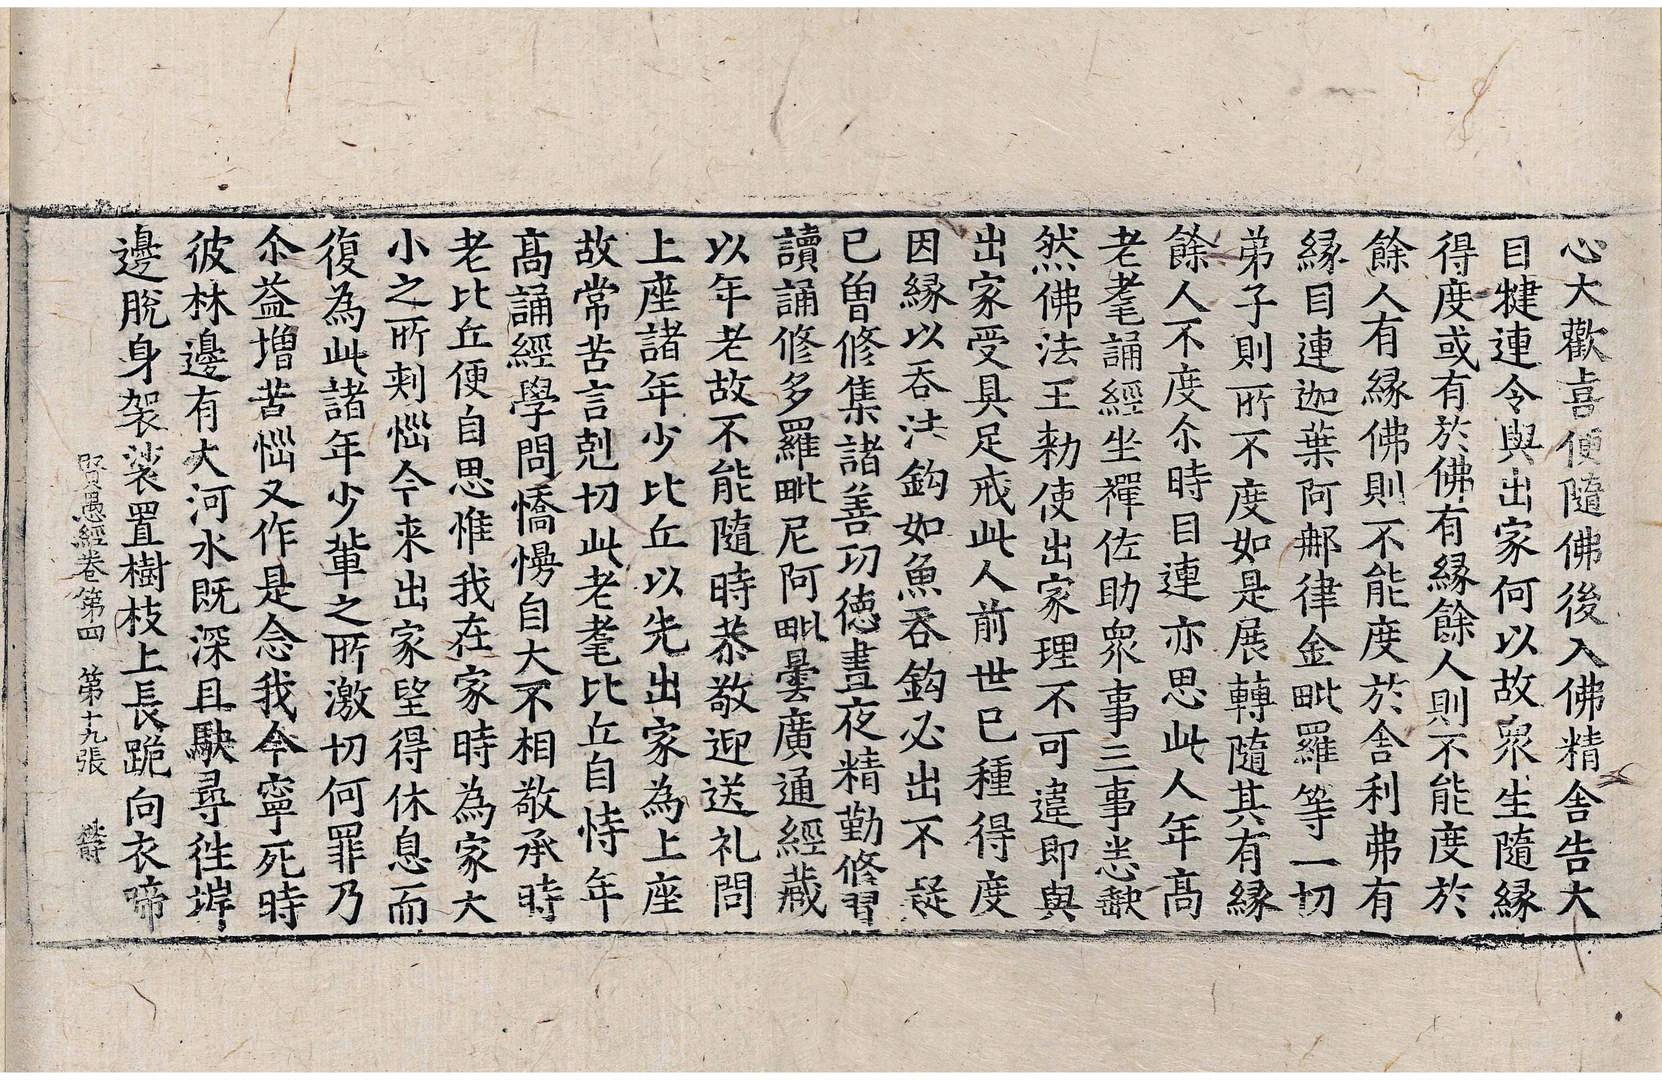 心大歡喜便隨佛後入佛精舍告大
目犍連令與出家何以故眾生隨緣
得度或有於佛有緣餘人則不能度於
餘人有緣佛則不能度於舍利弗有
緣目連迦葉阿那律金毗羅等一切
弟子則所不度如是展轉隨其有緣
餘人不度尒時目連亦思此人年高
老耄誦經坐禪佐助眾事三事悉缺
然佛法王勑使出家理不可違即與
出家受具足戒此人前世已種得度
因緣以吞法鉤如魚吞鉤必出不疑
已曽修集諸善功德晝夜精勤修習
讀誦修多羅毗尼阿毗曇廣通經藏
以年老故不能隨時恭敬迎送礼問
上座諸年少比丘以先出家為上座
故常苦言剋切此老耄比丘自恃年
高誦經學問憍慢自大不相敬承時
老比丘便自思惟我在家時為家大
小之所刾惱今来出家望得休息而
復為此諸年少輩之所激切何罪乃
尒益增苦惱又作是念我今寧死時
彼林邊有大河水既深且駃尋往岸
邊脫身袈裟置樹枝上長跪向衣啼
賢愚經卷第四 第十九張 欝